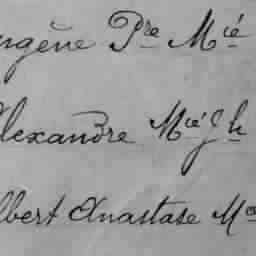 ugène Pre Mié
lexandre Mié Jh
lbert Anastase M